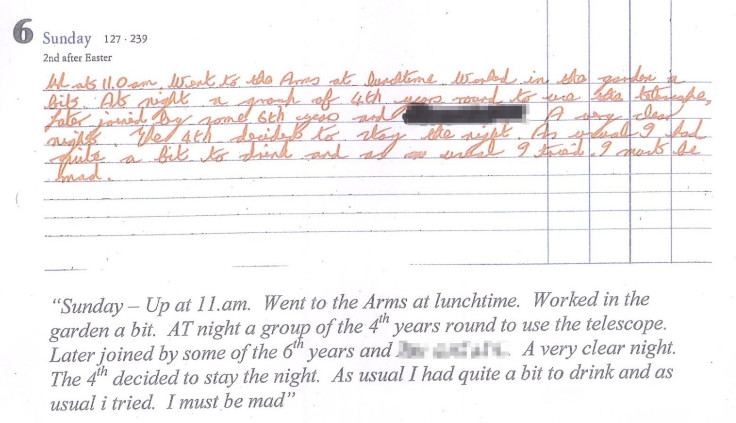 6 Sunday 127 · 239
2nd after Easter
Up at 11.0am. Went to the Arms at lunchtime Worked in the garden a
bit. At night a group of 4th years round to use the telescope,
Later joined by some 6th years and A very clear
night. The 4th decided to stay the night. As usual I had
quite a bit to drink and as usual I tried. I must be
mad.
"Sunday – Up at 11.am. Went to the Arms at lunchtime. Worked in the
garden a bit. AT night a group of the 4th years round to use the telescope.
Later joined by some of the 6th years and A very clear night.
The 4th decided to stay the night. As usual I had quite a bit to drink and as
usual i tried. I must be mad"